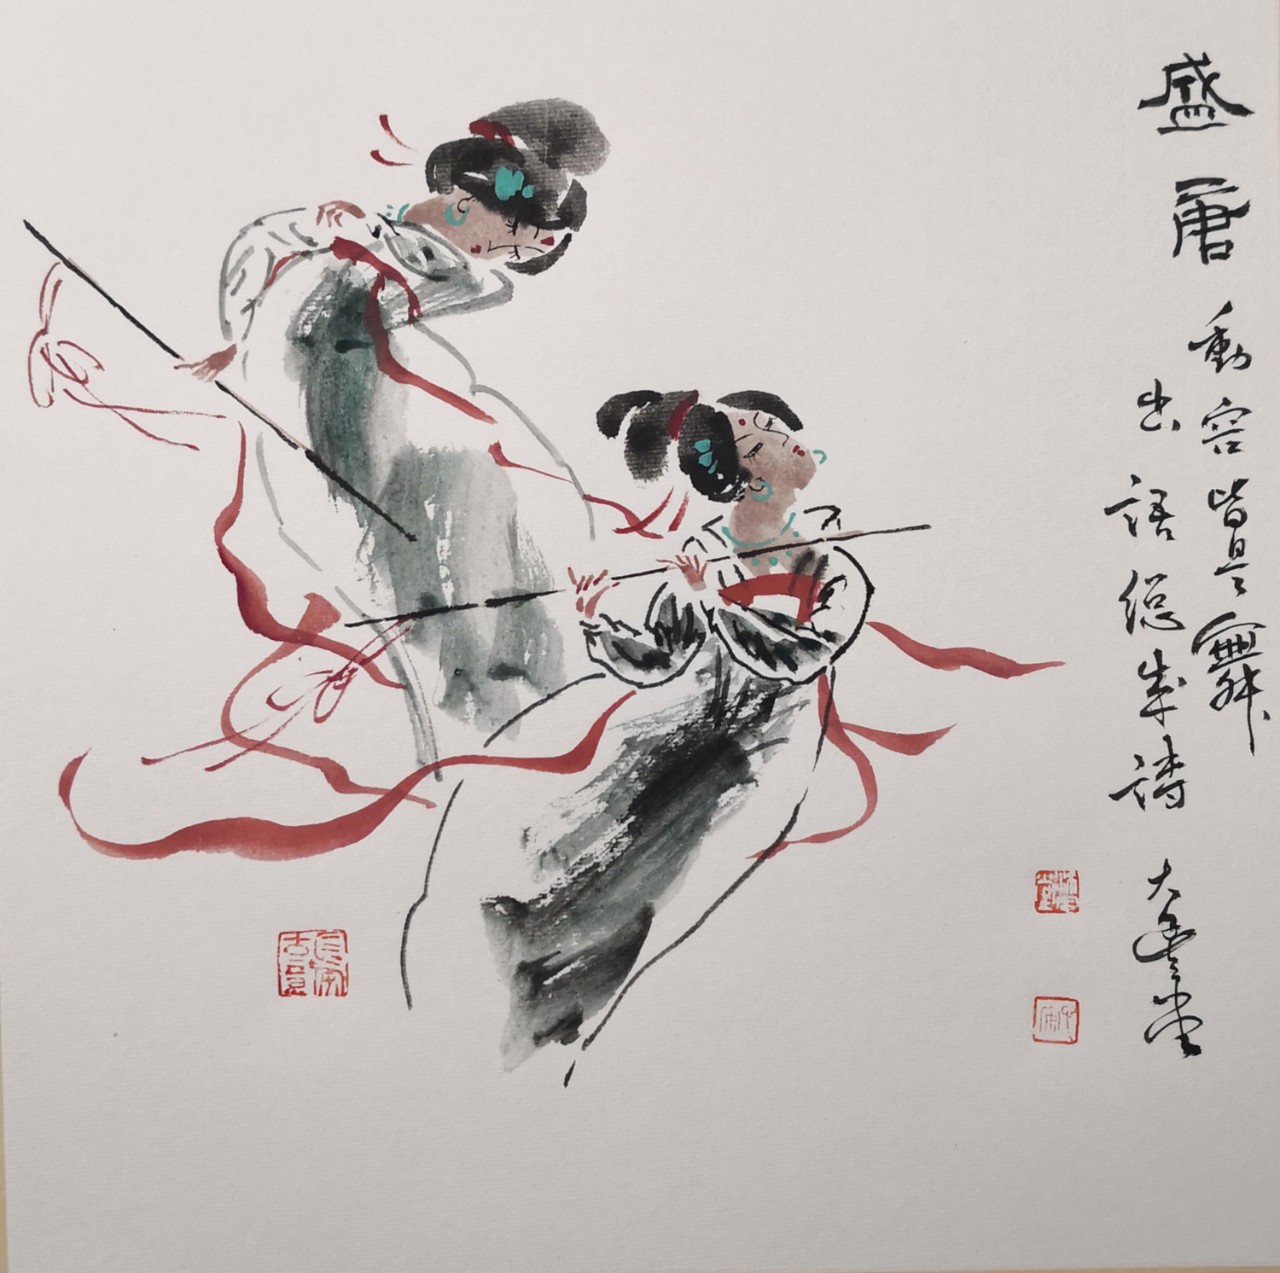 盛唐
動容皆是舞
出語總成詩
大